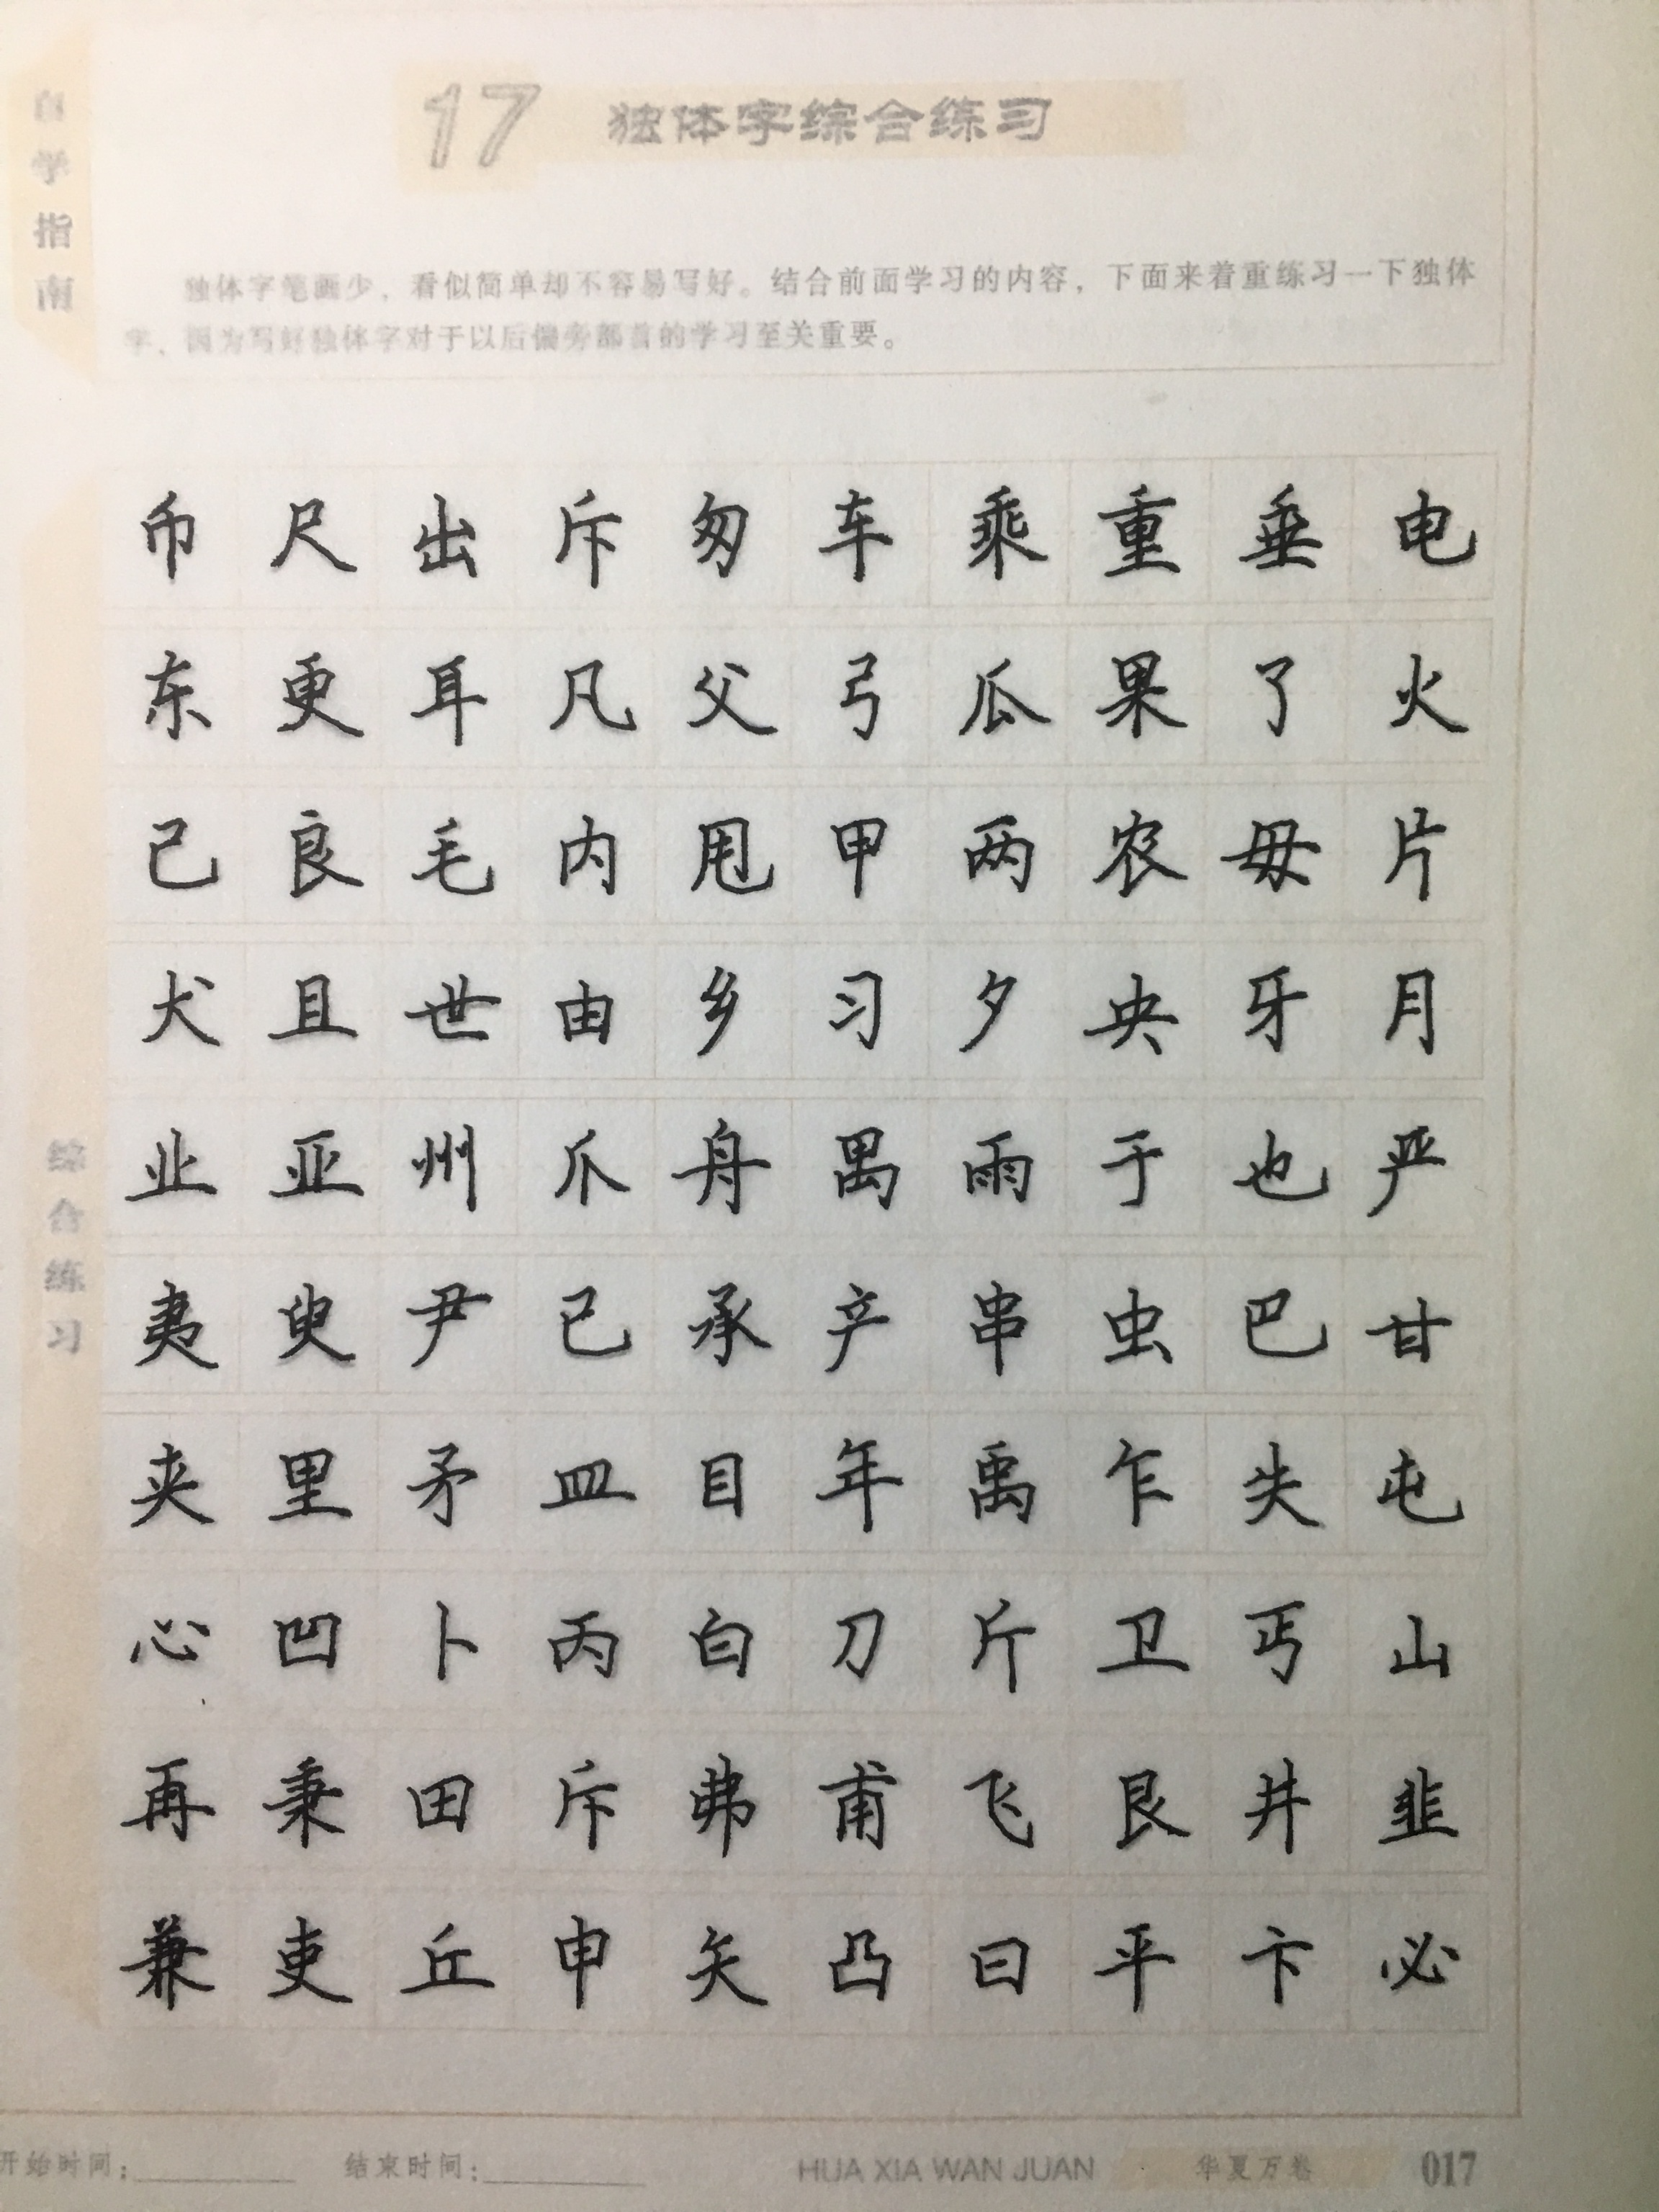 17 独体字综合练习
自学指南
独体字笔画少，看似简单却不容易写好。结合前面学习的内容，下面来着重练习一下独体
字，因为写好独体字对于以后偏旁部首的学习至关重要。
币尺出斥匆车乘重垂电
东更耳凡父弓瓜果了火
己良毛内甩甲两农毋片
犬且世由乡习夕央牙月
业亚州爪舟禺雨于也严
夷臾尹已承产串虫巴甘
夹里矛皿目年禹乍失屯
心凹卜丙白刀斤卫丐山
再秉田斥弗甫飞艮井韭
兼吏丘申矢凸曰平卞必
综合练习
开始时间：
结束时间：
HUA XIA WAN JUAN
华夏万卷
017